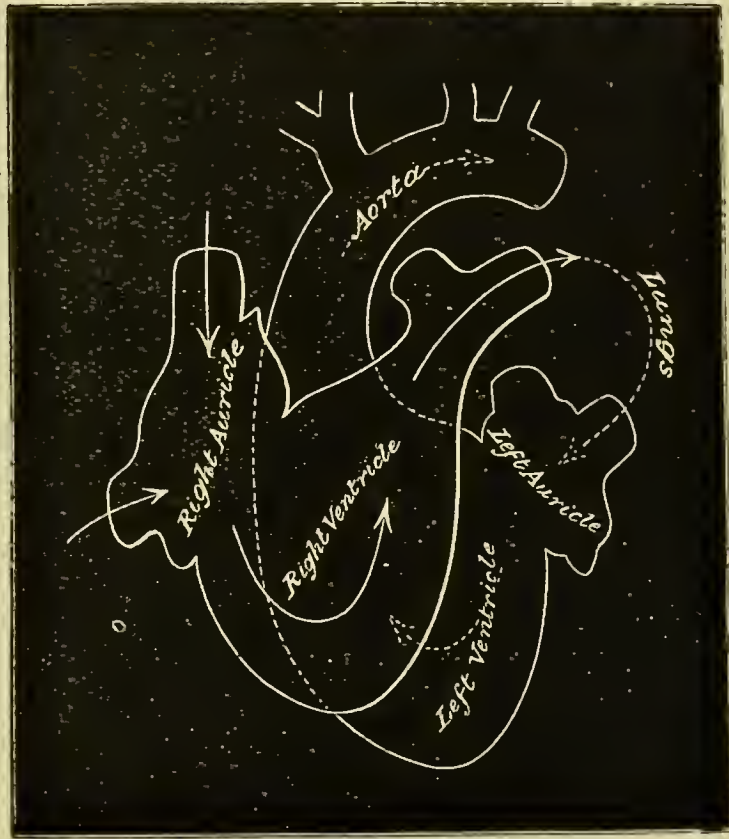 Aorta
Lungs
Right Auricle
Left Auricle
Right Ventricle
Left Ventricle